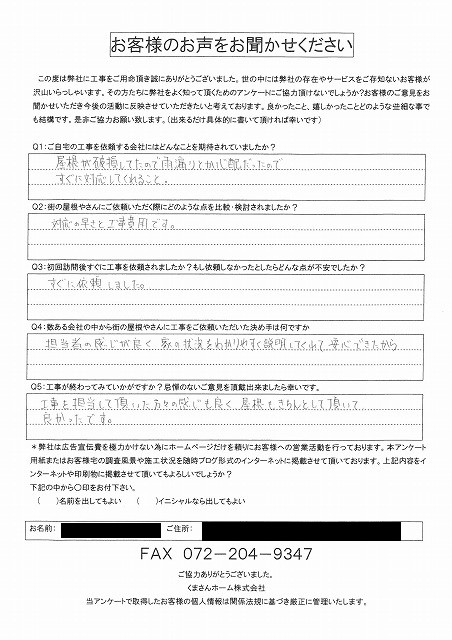 お客様のお声をお聞かせください
この度は弊社に工事をご用命頂き誠にありがとうございました。世の中には弊社の存在やサービスをご存知ないお客様が
沢山いらっしゃいます。その方たちに弊社をよく知って頂くためのアンケートにご協力頂けないでしょうか?お客様のご意見をお
聞かせいただき今後の活動に反映させていただきたいと考えております。良かったこと、嬉しかったことどのような些細な事で
も結構です。是非ご協力お願い致します。(出来るだけ具体的に書いて頂ければ幸いです)
Q1:ご自宅の工事を依頼する会社にはどんなことを期待されていましたか?
屋根が破損してたので雨漏りとか心配だったので
すぐに対応してくれること。
Q2:街の屋根やさんにご依頼いただく際にどのような点を比較・検討されましたか?
対応の早さと工事費用です。
Q3:初回訪問後すぐに工事を依頼されましたか?もし依頼しなかったとしたらどんな点が不安でしたか?
すぐに依頼しました。
Q4:数ある会社の中から街の屋根やさんに工事をご依頼いただいた決め手は何ですか
担当者の感じが良く 家の状況をわかりやすく説明してくれて 安心できたから
Q5:工事が終わってみていかがですか?忌憚のないご意見を頂戴出来ましたら幸いです。
工事を担当して頂いた方々の感じも良く 屋根もきちんとして頂いて
良かったです。
*弊社は広告宣伝費を極力かけない為にホームページだけを頼りにお客様への営業活動を行っております。本アンケート
用紙またはお客様宅の調査風景や施工状況を随時ブログ形式のインターネットに掲載させて頂いております。上記内容をイ
ンターネットや印刷物に掲載させて頂いてもよろしいでしょうか?
下記の中から○印をお付下さい。
( )名前を出してもよい ( )イニシャルなら出してもよい
お名前: ご住所:
FAX 072-204-9347
ご協力ありがとうございました。
くまさんホーム株式会社
当アンケートで取得したお客様の個人情報は関係法規に基づき厳正に管理いたします。